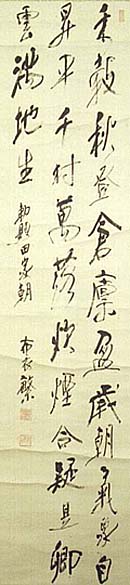 禾穀秋登倉廩盈歳朝氣象自
昇平千村萬落炊煙合疑是卿
雲満地生
勅題田家朝
布衣繁